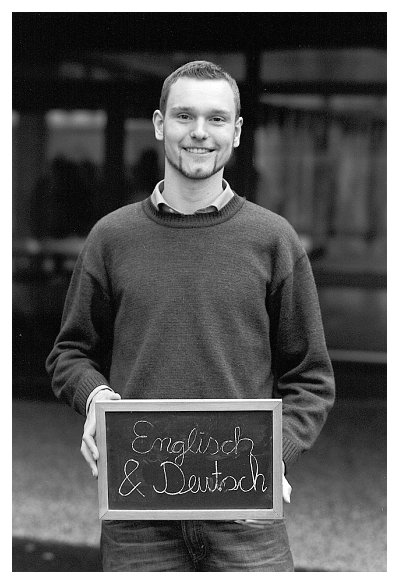 Englisch
& Deutsch